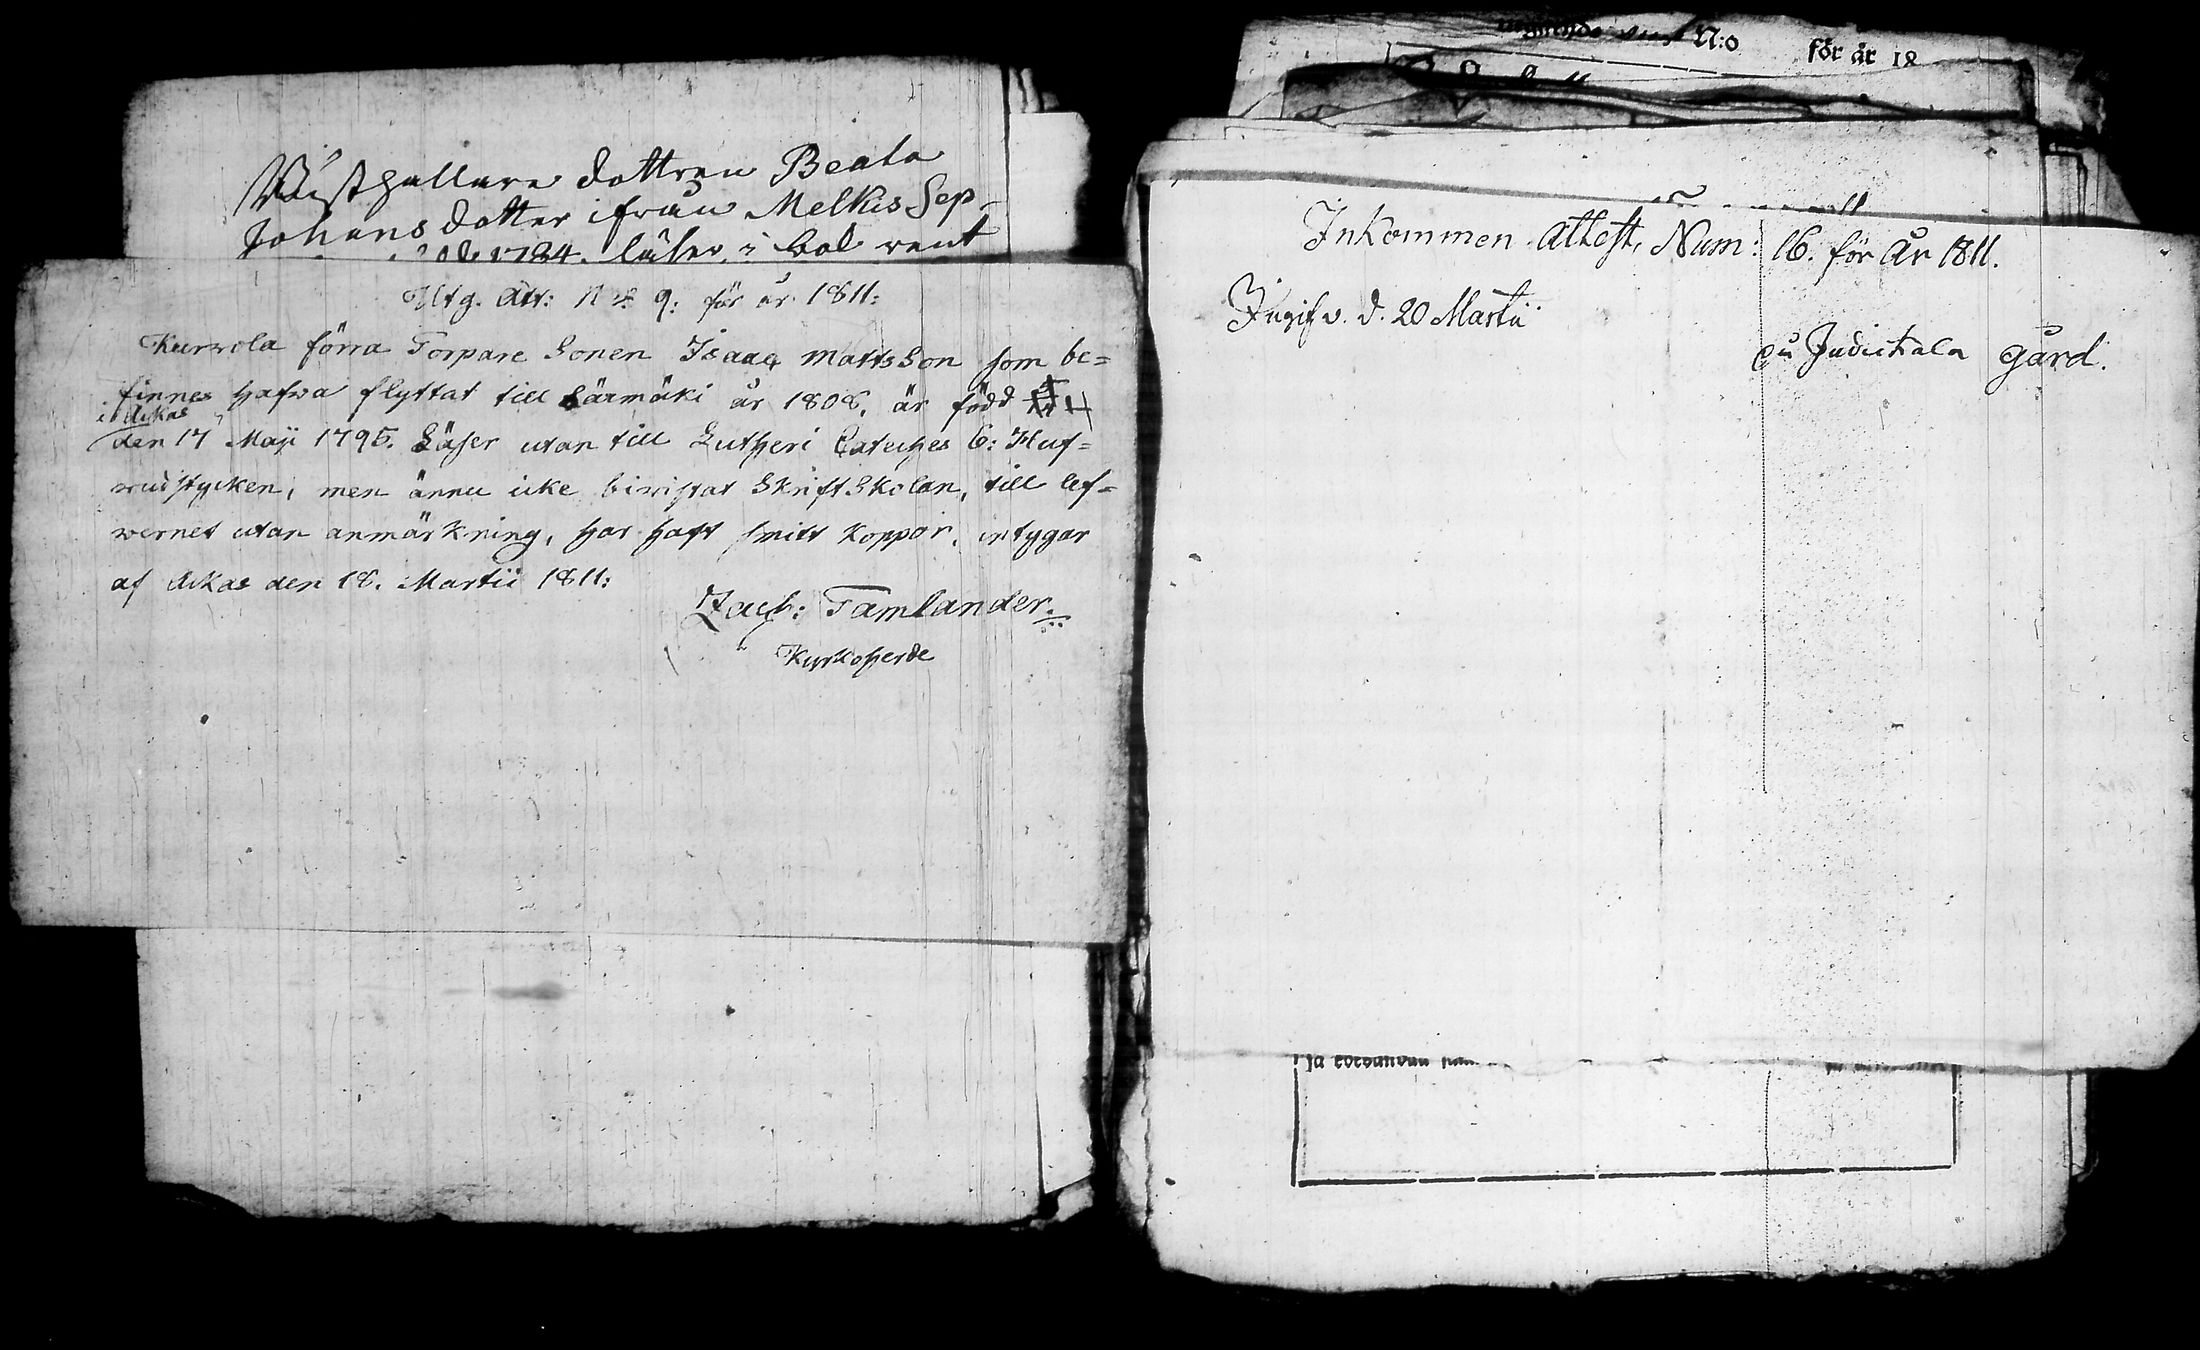 Rusthållare dottren Beata
Johans dotter ifrån Melkis Sep-
1784. läser i bok rent
Utg. Att: N:o 9: för år 1811:
Kurvola förra Torpare Sonen Isaac Mattsson som be=
finnes hafwa flyttat till Särmäki år 1808, är född
i Ackas
den 17 Maji 1795. Läser utan till Lutheri Cateches 6: Huf=
wudstycken, men ännu icke biwistat Skriftskolan, till lef=
wernet utan anmärkning, har haft smitt koppor, intygar
af Ackas den 18. Martii 1811:
Zach: Tamlander.
Kyrkoherde
N:o för år 18
Inkommen Attest, Num: 16. för År 1811.
Ingifv. d. 20 Martii
gård.